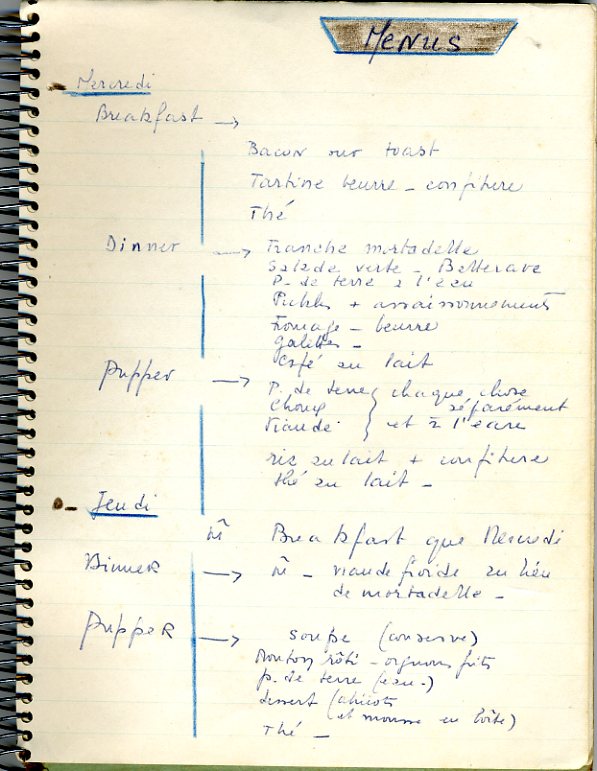 MENUS
Mercredi
Breakfast →
Bacon sur toast
Tartine beurre - confiture
Thé
Dinner → Tranche mortadelle
Salade verte - Betterave
P. de terre à l'eau
Pickles + assaisonnements
Fromage - beurre
galettes -
Café au lait
Supper → P. de terre } chaque chose
Choux } séparément
Viande } et à l'eau
riz au lait + confiture
thé au lait -
Jeudi
m̂ Breakfast que Mercredi
Dinner → m̂ - viande froide au lieu
de mortadelle -
Supper → Soupe (conserve)
Mouton rôti - oignons frits
p. de terre (eau -)
dessert (abricots
et mousse en boîte)
Thé -